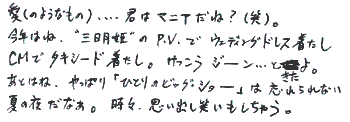 愛(のようなもの)‥‥君はマニアだね?(笑)。
今年はね、"三日月姫"のP.V.でウェディングドレス着たし
CMでタキシード着たし。けっこうジーン…ときたよ。
あとはね、やっぱり「ひとりのビッグショー」は忘れられない
夏の夜だなあ。時々、思い出し笑いもしちゃう。